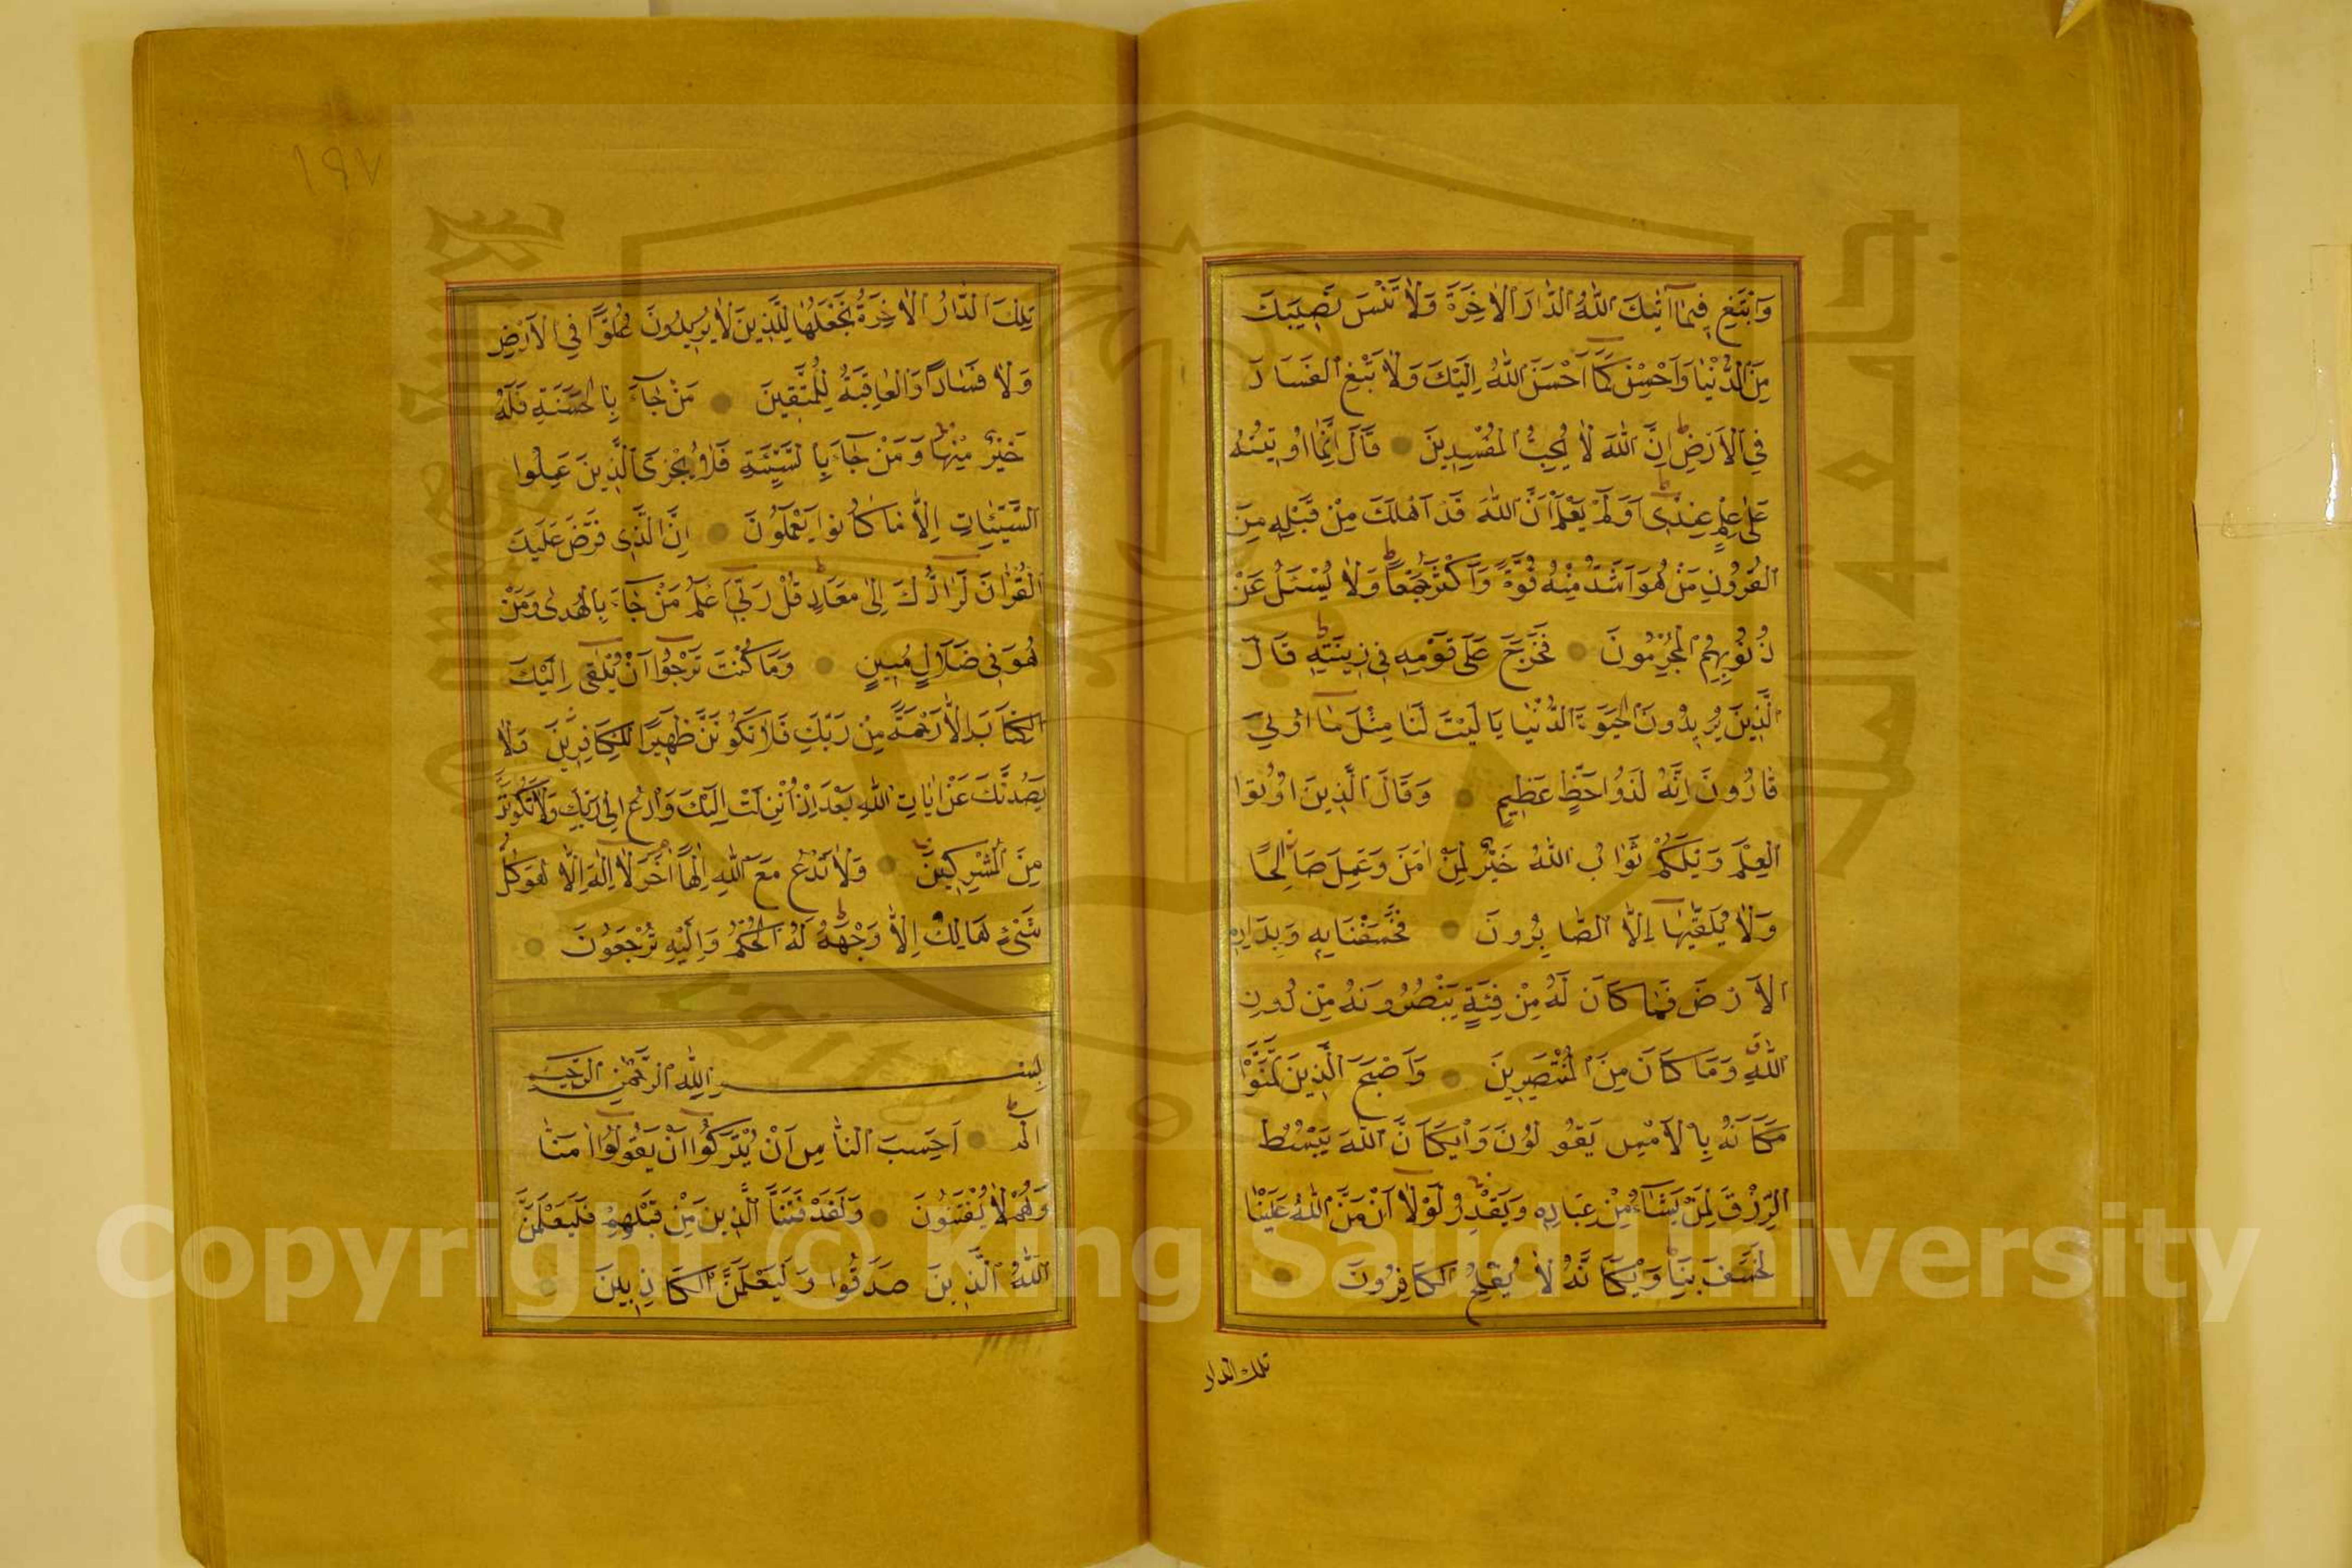 وَابْتَغِ فِيمَا آتٰيكَ اللّٰهُ الدَّارَ الْاٰخِرَةَ وَلَا تَنْسَ نَصِيبَكَ
مِنَ الدُّنْيَا وَاَحْسِنْ كَمَا اَحْسَنَ اللّٰهُ اِلَيْكَ وَلَا تَبْغِ الْفَسَادَ
فِي الْاَرْضِ اِنَّ اللّٰهَ لَا يُحِبُّ الْمُفْسِدِينَ قَالَ اِنَّمَا اُوتِيتُهُ
عَلٰى عِلْمٍ عِنْدِي اَوَلَمْ يَعْلَمْ اَنَّ اللّٰهَ قَدْ اَهْلَكَ مِنْ قَبْلِهِ مِنَ
الْقُرُونِ مَنْ هُوَ اَشَدُّ مِنْهُ قُوَّةً وَاَكْثَرُ جَمْعًا وَلَا يُسْئَلُ عَنْ
ذُنُوبِهِمُ الْمُجْرِمُونَ فَخَرَجَ عَلٰى قَوْمِهِ فِي زِينَتِهِ قَالَ
الَّذِينَ يُرِيدُونَ الْحَيٰوةَ الدُّنْيَا يَا لَيْتَ لَنَا مِثْلَ مَا اُوتِيَ
قَارُونَ اِنَّهُ لَذُوا حَظٍّ عَظِيمٍ وَقَالَ الَّذِينَ اُوتُوا
الْعِلْمَ وَيْلَكُمْ ثَوَابُ اللّٰهِ خَيْرٌ لِمَنْ اٰمَنَ وَعَمِلَ صَالِحًا
وَلَا يُلَقّٰيهَا اِلَّا الصَّابِرُونَ فَخَسَفْنَا بِهِ وَبِدَارِهِ
الْاَرْضَ فَمَا كَانَ لَهُ مِنْ فِئَةٍ يَنْصُرُونَهُ مِنْ دُونِ
اللّٰهِ وَمَا كَانَ مِنَ الْمُنْتَصِرِينَ وَاَصْبَحَ الَّذِينَ تَمَنَّوْا
مَكَانَهُ بِالْاَمْسِ يَقُولُونَ وَيْكَاَنَّ اللّٰهَ يَبْسُطُ
الرِّزْقَ لِمَنْ يَشَاءُ مِنْ عِبَادِهِ وَيَقْدِرُ لَوْلَا اَنْ مَنَّ اللّٰهُ عَلَيْنَا
لَخَسَفَ بِنَا وَيْكَاَنَّهُ لَا يُفْلِحُ الْكَافِرُونَ
تلك الدار
١٩٧
تِلْكَ الدَّارُ الْاٰخِرَةُ نَجْعَلُهَا لِلَّذِينَ لَا يُرِيدُونَ عُلُوًّا فِي الْاَرْضِ
وَلَا فَسَادًا وَالْعَاقِبَةُ لِلْمُتَّقِينَ مَنْ جَاءَ بِالْحَسَنَةِ فَلَهُ
خَيْرٌ مِنْهَا وَمَنْ جَاءَ بِالسَّيِّئَةِ فَلَا يُجْزَى الَّذِينَ عَمِلُوا
السَّيِّئَاتِ اِلَّا مَا كَانُوا يَعْمَلُونَ اِنَّ الَّذِي فَرَضَ عَلَيْكَ
الْقُرْاٰنَ لَرَادُّكَ اِلٰى مَعَادٍ قُلْ رَبِّي اَعْلَمُ مَنْ جَاءَ بِالْهُدٰى وَمَنْ
هُوَ فِي ضَلَالٍ مُبِينٍ وَمَا كُنْتَ تَرْجُوا اَنْ يُلْقٰى اِلَيْكَ
الْكِتَابُ اِلَّا رَحْمَةً مِنْ رَبِّكَ فَلَا تَكُونَنَّ ظَهِيرًا لِلْكَافِرِينَ وَلَا
يَصُدُّنَّكَ عَنْ اٰيَاتِ اللّٰهِ بَعْدَ اِذْ اُنْزِلَتْ اِلَيْكَ وَادْعُ اِلٰى رَبِّكَ وَلَا تَكُونَنَّ
مِنَ الْمُشْرِكِينَ وَلَا تَدْعُ مَعَ اللّٰهِ اِلٰهًا اٰخَرَ لَا اِلٰهَ اِلَّا هُوَ كُلُّ
شَيْءٍ هَالِكٌ اِلَّا وَجْهَهُ لَهُ الْحُكْمُ وَاِلَيْهِ تُرْجَعُونَ
بِسْمِ اللّٰهِ الرَّحْمٰنِ الرَّحِيمِ
الٓمٓ اَحَسِبَ النَّاسُ اَنْ يُتْرَكُوا اَنْ يَقُولُوا اٰمَنَّا
وَهُمْ لَا يُفْتَنُونَ وَلَقَدْ فَتَنَّا الَّذِينَ مِنْ قَبْلِهِمْ فَلَيَعْلَمَنَّ
اللّٰهُ الَّذِينَ صَدَقُوا وَلَيَعْلَمَنَّ الْكَاذِبِينَ
Copyright © King Saud University